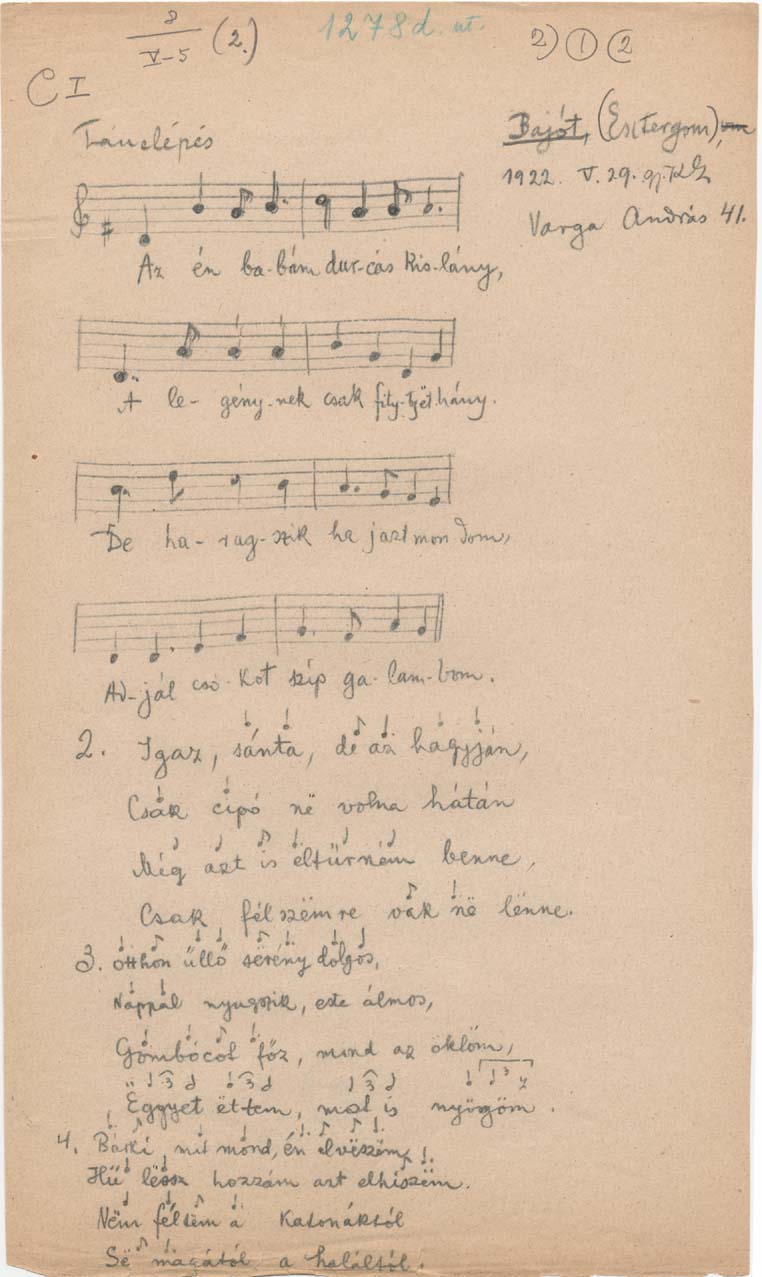 8
V-5 (2.)
1278d. ut.
2) 1 2
C I
Tánclépés
Bajót, (Esztergom),
1922. V. 29. gy. KZ
Varga András 41.
Az én ba-bám dur-cás kis-lány,
A le-gény-nek csak fity-tyët hány.
De ha-rag-szik ha jazt mon dom,
Ad-jál csó-kot szíp ga-lam-bom.
2. Igaz, sánta, de az hagyján,
Csak cipó në volna hátán
Míg azt is eltürném benne,
Csak félszëmre vak në lënne.
3. Otthon űllő serény dolgos,
Náppál nyugszik, este álmos,
Gömbócöt főz, mind az öklöm,
Ëggyet ëttem, most is nyögöm.
4. Bárki mit mond, én elvëszëm,
Hű lëssz hozzám azt elhiszëm.
Nëm féltëm a Katonáktól
Së magától a haláltól.